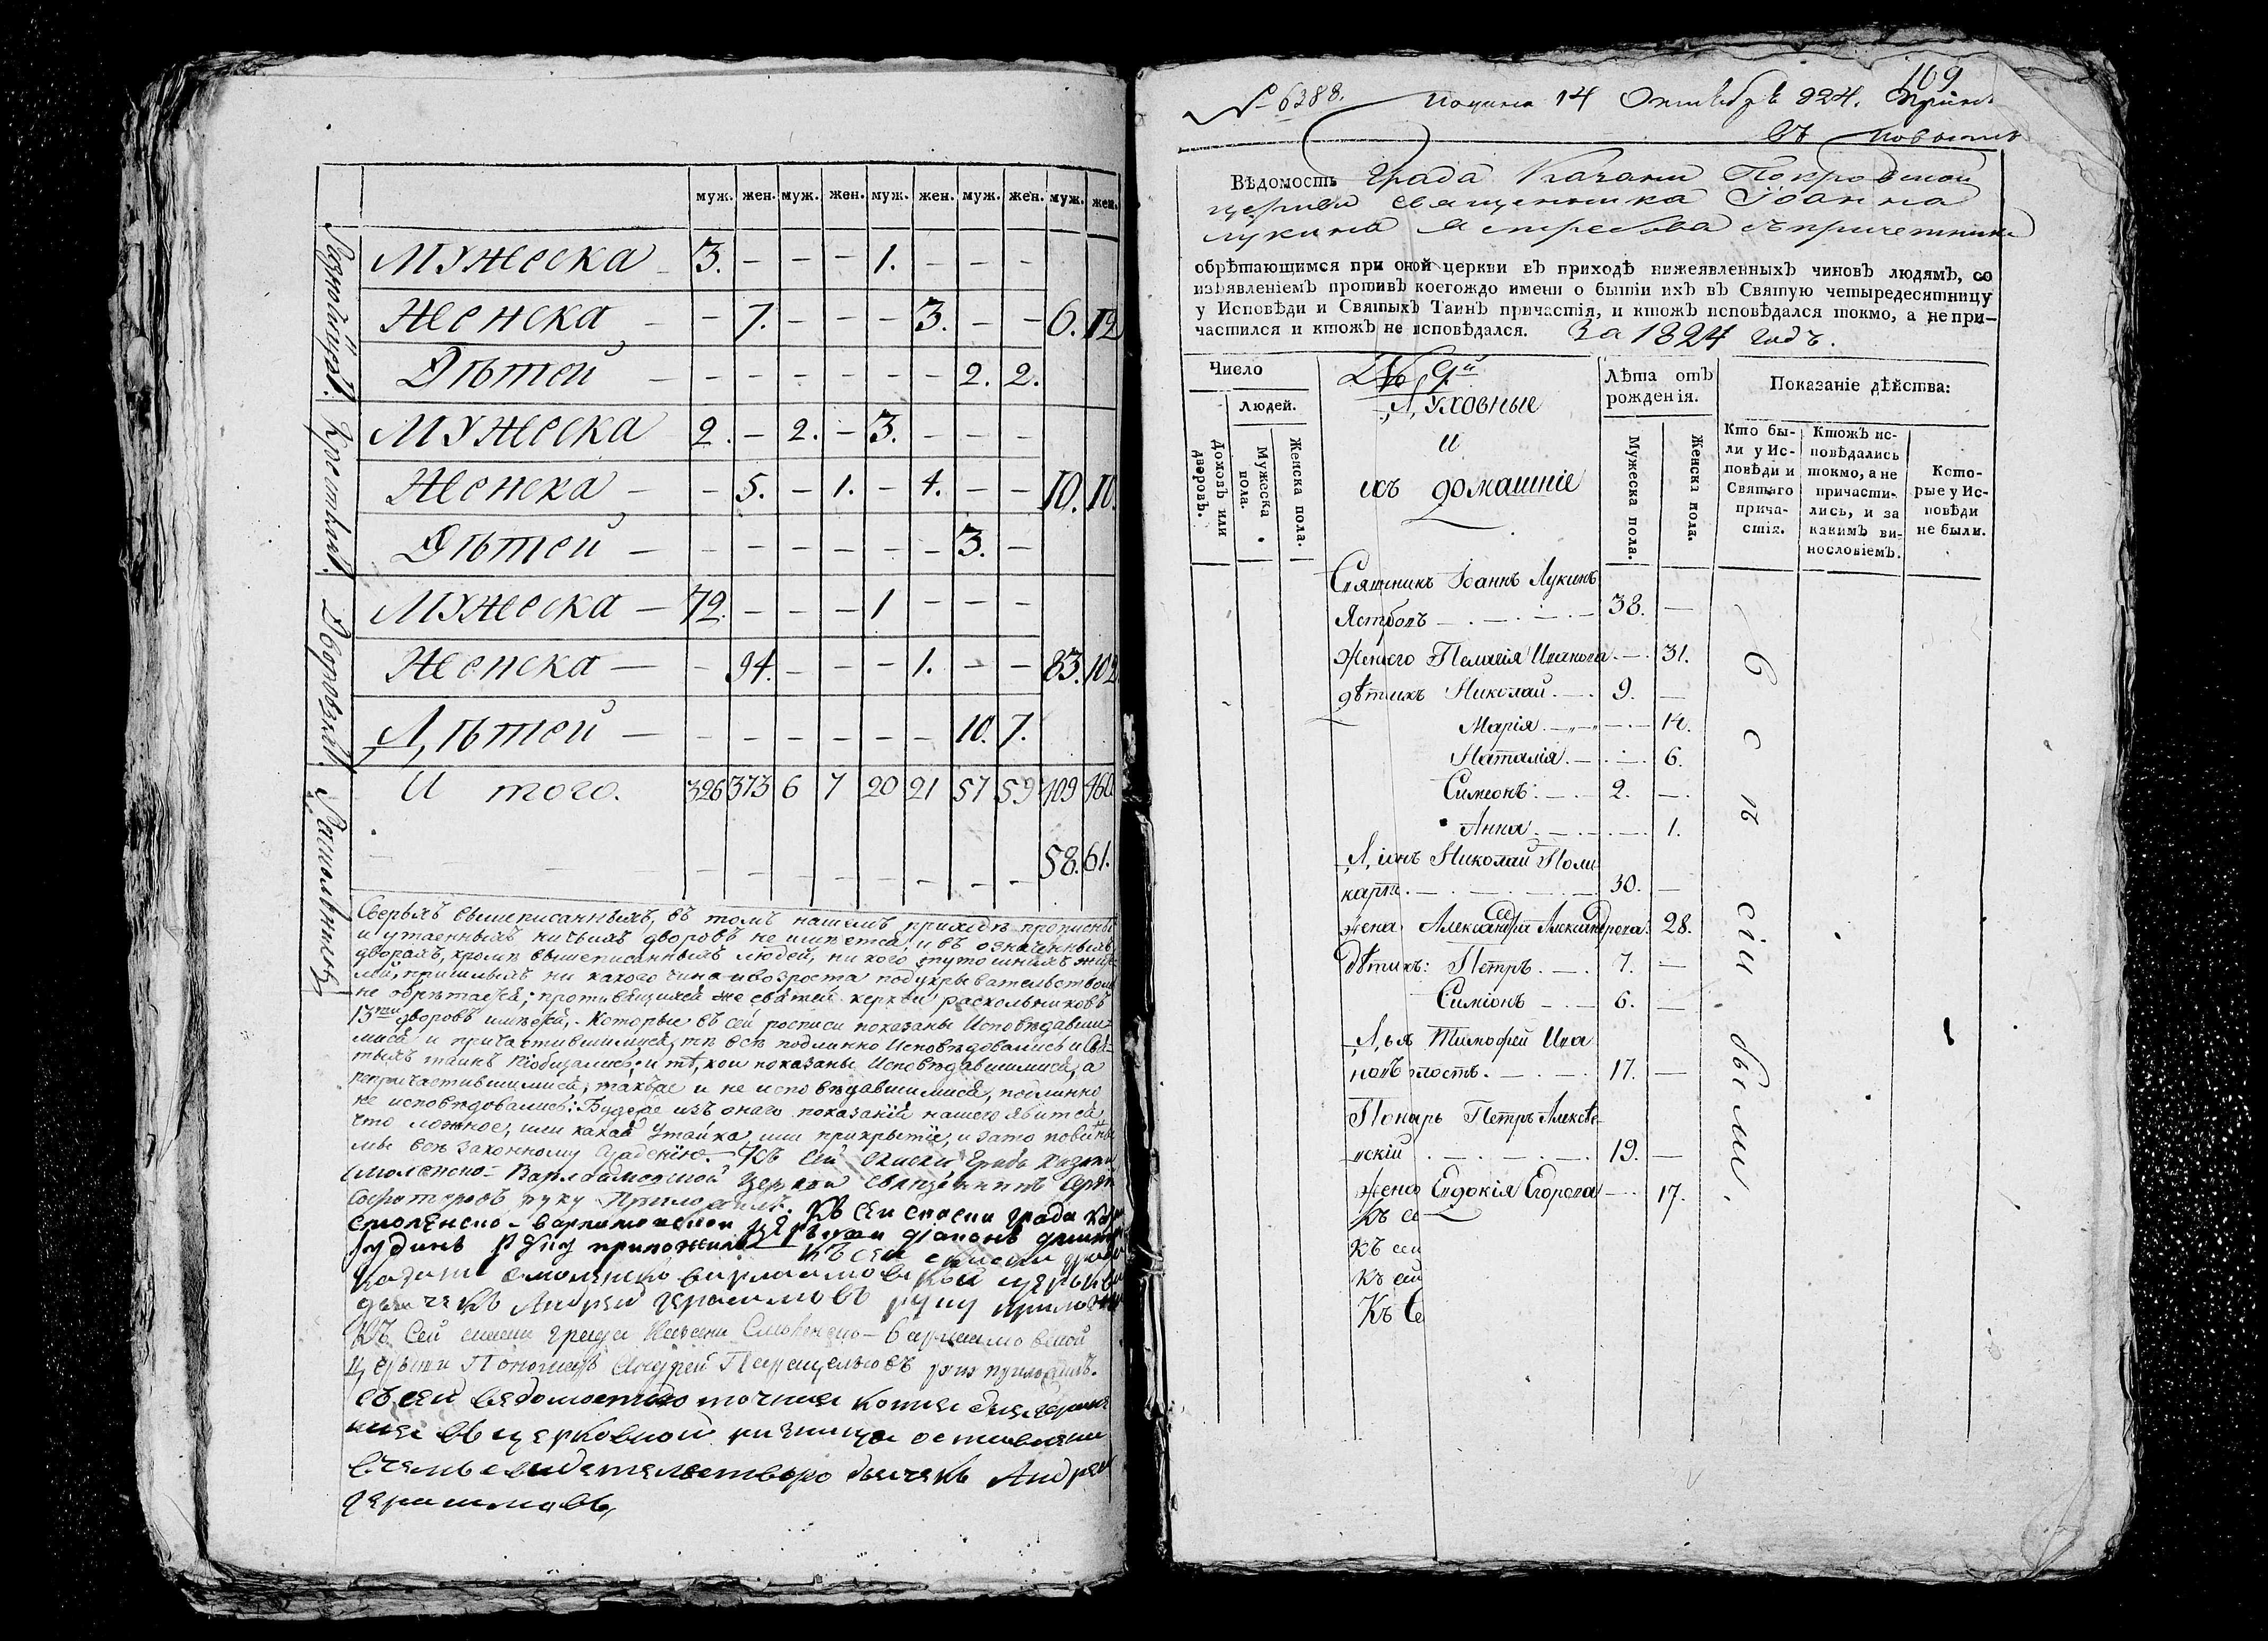 муж. жен. муж. жен. муж. жен. муж. жен. муж. жен.
Разночинцовъ.
Мужеска 3. - - - 1. - - -
Женска - 7. - - - 3. - - 6. 12
Дѣтей - - - - - - 2. 2.
Крестьянъ.
Мужеска 2. - 2. - 3. - - -
Женска - 5. - 1. - 4. - - 10. 10.
Дѣтей - - - - - - 3. -
Дворовыхъ.
Мужеска 72. - - - 1 - - -
Женска - 94. - - - 1. - - 83. 102.
Дѣтей - - - - - - 10. 7.
И того. 326 373 6 7 20 21 57 59 409 460
Раскольниковъ
58. 61.
Сверьхъ вышеписанныхъ, въ томъ нашемъ приходѣ прописныхъ
и утаенныхъ ничьихъ дворовъ не имѣется, и въ означенныхъ
дворахъ, кромѣ вышеписанныхъ людей, ни кого тутошнихъ жите-
лей, пришлыхъ ни какого чина и возроста подукрывательствомъ
не обрѣтается; противящихся же святей церкви раскольниковъ
13ти дворовъ имѣетъ. Которые въ сей росписи показаны Исповѣдавши-
мися и причастившимися, тѣ всѣ подлинно Исповѣдовались и Свя-
тыхъ таинъ Пріобщались; и тѣ, кои показаны Исповѣдавшимися, а
непричастившимися, такъ же и не исповѣдавшимися, подлинно
не исповѣдовались: Буде же изъ онаго показанія нашего явится
что ложное, или какая Утайка, или прикрытіе, и зато повинны
мы всѣ законному сужденію. Къ сей сказки града Казани
Смоленско-Варлаамовской церкви священникъ
руку приложилъ. Къ сей сказки града
Смоленско-Варламовской церкви діаконъ
руку приложилъ Къ сей сказки града
Казани Смоленско варлаамовской церкви
дьячекъ Андрей Герасимовъ руку приложилъ
Къ Сей сказки града Казани Смоленско-Варлаамовской
церкви Пономарь Андрей руку приложилъ.
съ сей ведомостию точная копия
въ церковной ризнице оставлена
в чемъ свидетельствую дьячекъ Андрей
Герасимовъ,
109
№ 6388. 14 Октября 824.
въ
Вѣдомость Града Казани Покровской
церкви священника Іоанна
Лукина Ястребова съ причетники
обрѣтающимся при оной церкви въ приходѣ нижеявленныхъ чиновъ людямъ, со
изъявленіемъ противъ коегождо имени о бытіи ихъ въ Святую четыредесятницу
у Исповѣди и Святыхъ Таинъ причастія, и ктожъ исповѣдался токмо, а не при-
частился и ктожъ не исповѣдался. За 1824 годъ.
Число
Людей.
Домовъ или дворовъ.
Мужеска пола.
Женска пола.
Духовные
и
ихъ домашніе
Лѣта отъ
рожденія.
Мужеска пола.
Женска пола.
Показаніе дѣйства:
Кто бы-
ли у Ис-
повѣди и
Святаго
прича-
стія.
Ктожъ ис-
повѣдались
токмо, а не
причасти-
лись, и за
какимъ ви-
нословіемъ.
Кото-
рые у Ис-
повѣди
не были.
Сщенникъ Іоаннъ Лукинъ
Ястбовъ 38. -
Жена его Пелагія Иванова - 31.
Дѣти ихъ Николай 9. -
Марія - 12.
Наталія - 6.
Симеонъ 2. -
Анна - 1.
Діконъ Николай Поли
карпъ 30. -
Жена его Александра Александрова 28.
Дѣти ихъ: Петръ 7. -
Симіонъ 6. -
Дья Тимофей Ива
новъ холостъ 17. -
Понарь Петръ Алексѣе-
вскій 19. -
Жена Евдокія Егорова - 17.
Всѣ сіи были.
Къ се
Къ сей
Къ сей
Къ Се